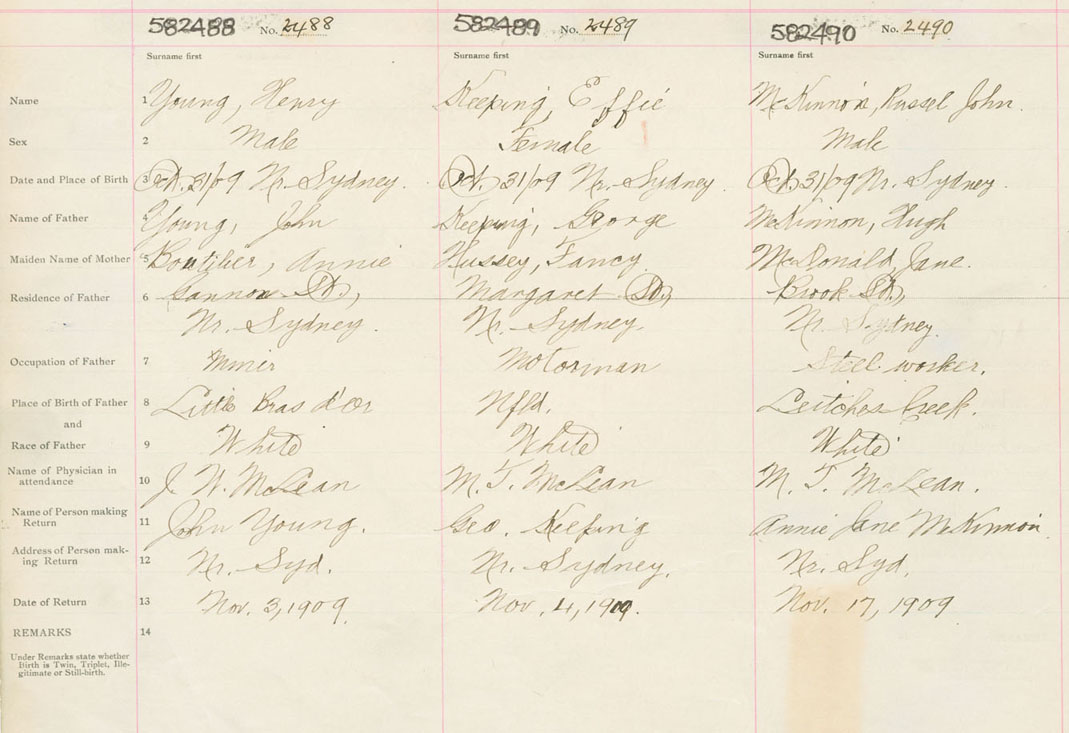 582488 No. 2488 582489 No. 2489 582490 No. 2490
Surname first Surname first Surname first
Name 1 Young, Henry Keeping, Effie McKinnon, Russel John.
Sex 2 Male Female Male
Date and Place of Birth 3 Oct. 31/09 Nr. Sydney. Oct. 31/09 Nr. Sydney. Oct. 31/09 Nr. Sydney.
Name of Father 4 Young, John Keeping, George McKinnon, Hugh
Maiden Name of Mother 5 Boutilier, Annie Hussey, Fancy McDonald, Jane.
Residence of Father 6 Cannon St., Margaret St., Brook St.,
Nr. Sydney. Nr. Sydney Nr. Sydney.
Occupation of Father 7 Miner Motorman Steel worker.
Place of Birth of Father 8 Little Bras d'or Nfld. Leitches Creek.
and
Race of Father 9 White White White
Name of Physician in
attendance 10 J. W. McLean M. T. McLean M. T. McLean.
Name of Person making
Return 11 John Young. Geo. Keeping Annie Jane McKinnon.
Address of Person mak-
ing Return 12 Nr. Syd. Nr. Sydney. Nr. Syd.
Date of Return 13 Nov. 3, 1909. Nov. 4, 1909. Nov. 17, 1909
REMARKS 14
Under Remarks state whether
Birth is Twin, Triplet, Ille-
gitimate or Still-birth.